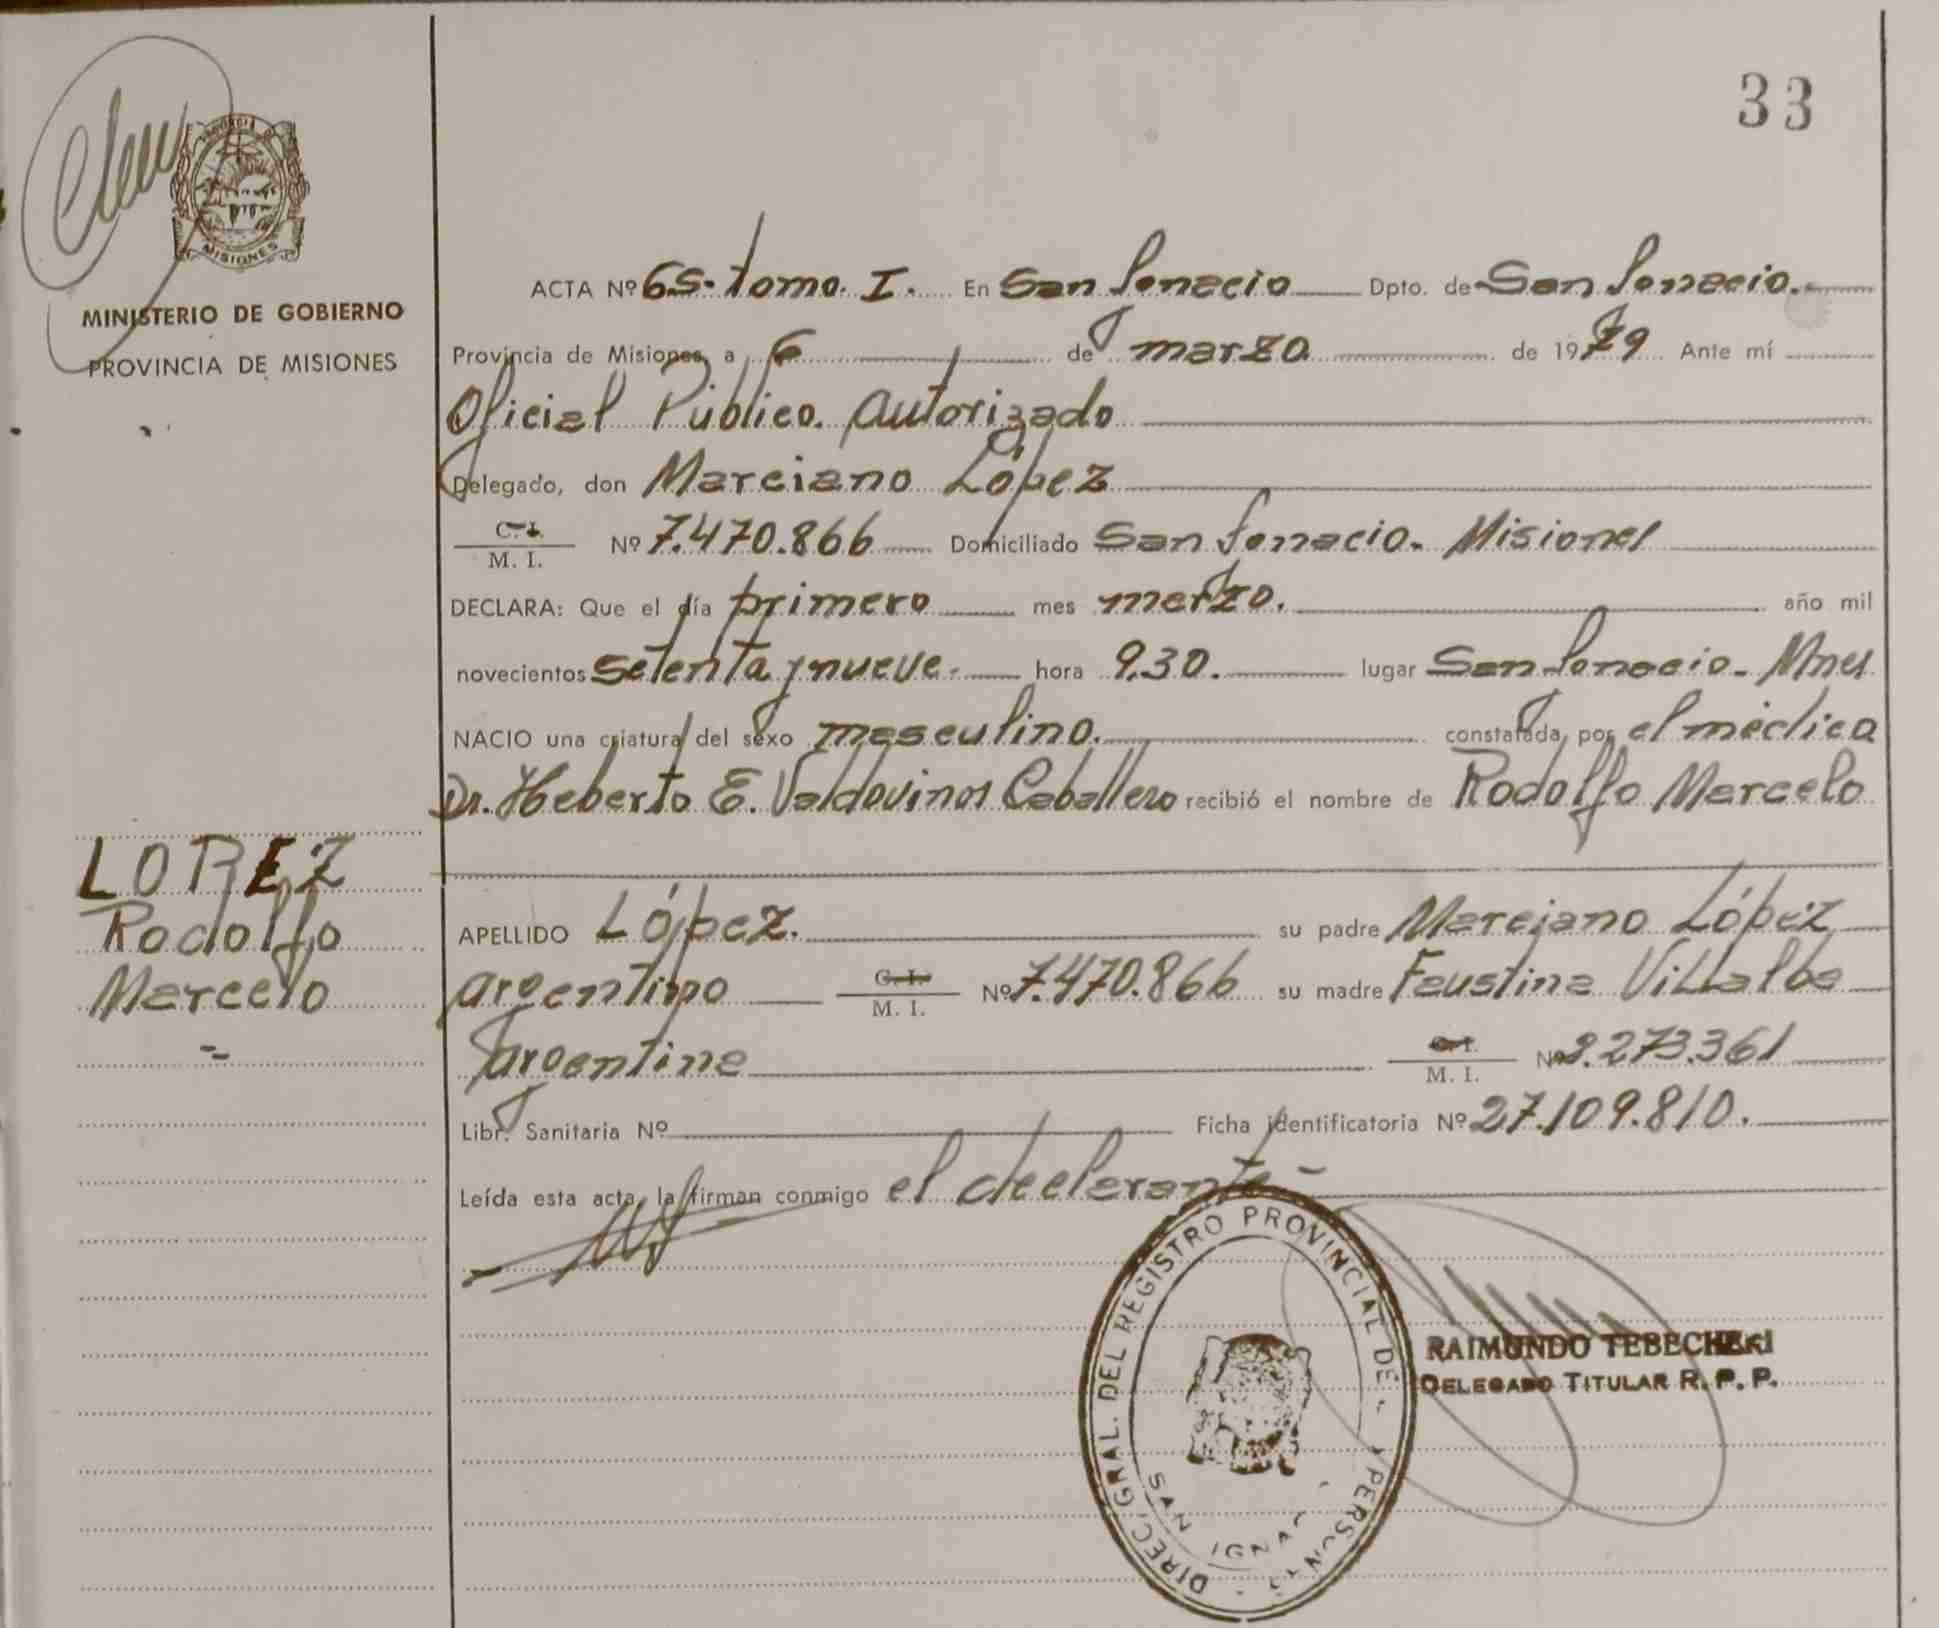 33
PROVINCIA DE
MISIONES
MINISTERIO DE GOBIERNO
PROVINCIA DE MISIONES
LOPEZ
Rodolfo
Marcelo
ACTA Nº 65. tomo. I. En San Ignacio Dpto. de San Ignacio.
Provincia de Misiones, a 6 de marzo de 1979 Ante mí
Oficial Público. Autorizado
Delegado, don Marciano López
C. I.
M. I. Nº 7.470.866 Domiciliado San Ignacio. Misiones
DECLARA: Que el día primero mes marzo. año mil
novecientos setenta y nueve. hora 9,30. lugar San Ignacio. Mnes
NACIO una criatura del sexo masculino. constatada por el médico
Dr. Heberto E. Valdovinos Caballero recibió el nombre de Rodolfo Marcelo
APELLIDO López. su padre Marciano López
argentino C. I.
M. I. Nº 7.470.866 su madre Faustina Villalba
argentina C. I.
M. I. Nº 9.273.361
Libr. Sanitaria Nº Ficha identificatoria Nº 27.109.810.
Leída esta acta, la firman conmigo el declarante
DIREC. GRAL. DEL REGISTRO PROVINCIAL DE
SAN
RAIMUNDO
DELEGADO TITULAR R. P. P.